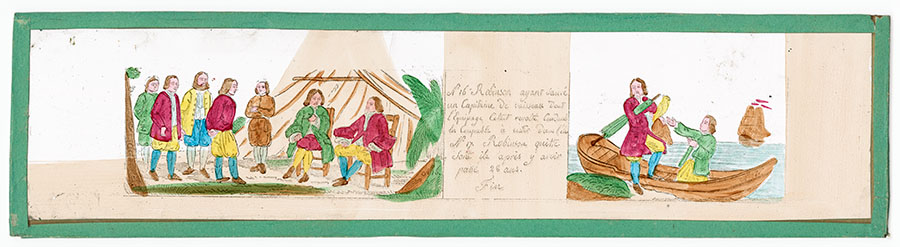 No 16 Robinson ayant sauvé
un Capitaine de vaisseau dont
l'équipage s'était revolté
le coupable a
No 17 Robinson quitte
son ile après y avoir
passé 28 ans.
Fin